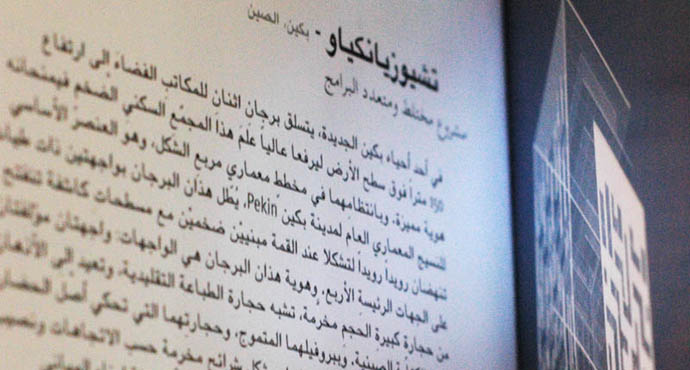 تشيوزيانكياو - بكين، الصين
مشروع مختلط ومتعدد البرامج
في أحد أحياء بكين الجديدة، يتسلق برجان اثنان للمكاتب الفضاءَ إلى ارتفاع
150 متراً فوق سطح الأرض ليرفعا عالياً عَلَمَ هذا المجمّع السكني الضخم فيمنحانه
هوية مميزة، وبانتظامهما في مخطط معماري مربع الشكل، وهو العنصر الأساسي
النسيج المعماري العام لمدينة بكين Pekin، يُطل هذان البرجان بواجهتين ذات
تنهضان رويداً رويداً لتشكلا عند القمة مبنيين ضخمين مع مسطحات كاشفة تنفتح
على الجهات الرئيسة الأربع، وهوية هذان البرجان هي الواجهات: واجهتان مؤلفتان
من حجارة كبيرة الحجم مخرّمة، تشبه حجارة الطباعة التقليدية، وتعيد إلى الأذهان
الصينية، وببروفيلهما المتموج، وحجارتهما التي تحكي أصل
شرائح مخرمة حسب الاتجاهات